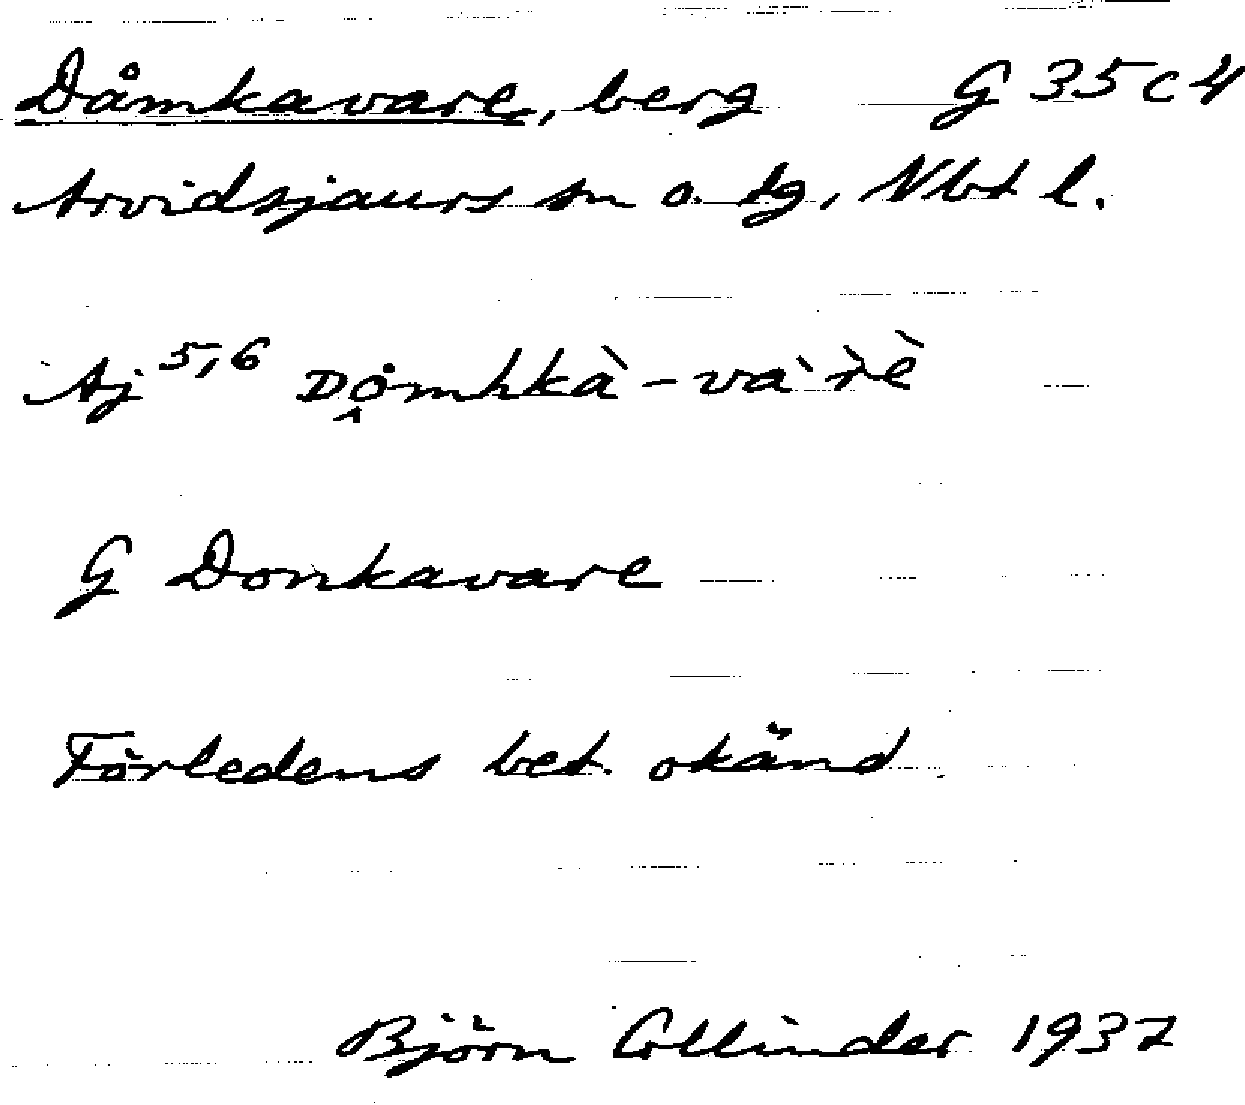 Dåmkavare, berg G 35 c 4
Arvidsjaurs sn o. tg, Nbt l.
Aj 5,6 Dåmhkà-vàr̀è
G Donkavare
Förledens bet. okänd
Björn Collinder 1937